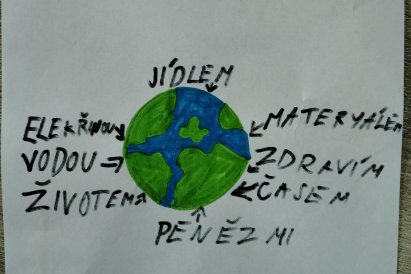 JÍDLEM
ELEKŘINOU
MATERYÁLEM
VODOU
ZDRAVÍM
ŽIVOTEM
ČASEM
PENĚZMI